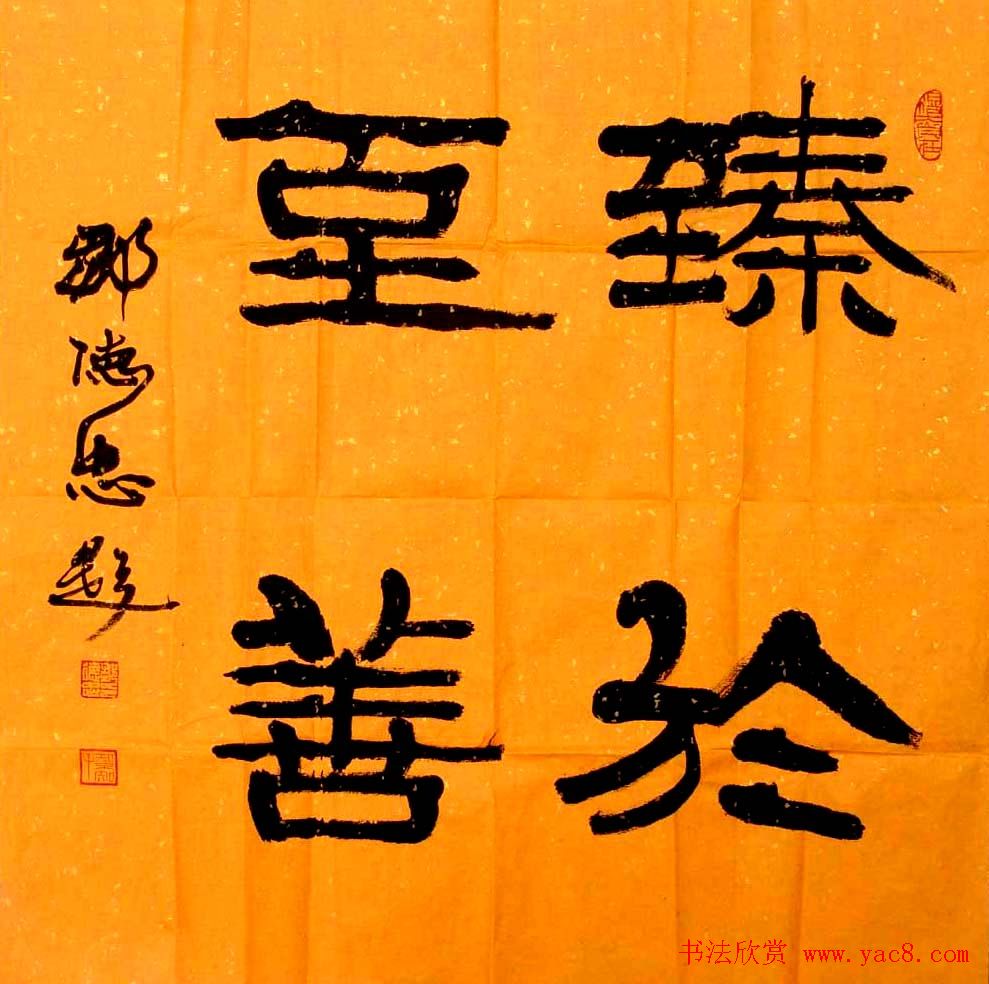 臻於
至善
鄧德忠題
书法欣赏 www.yac8.com